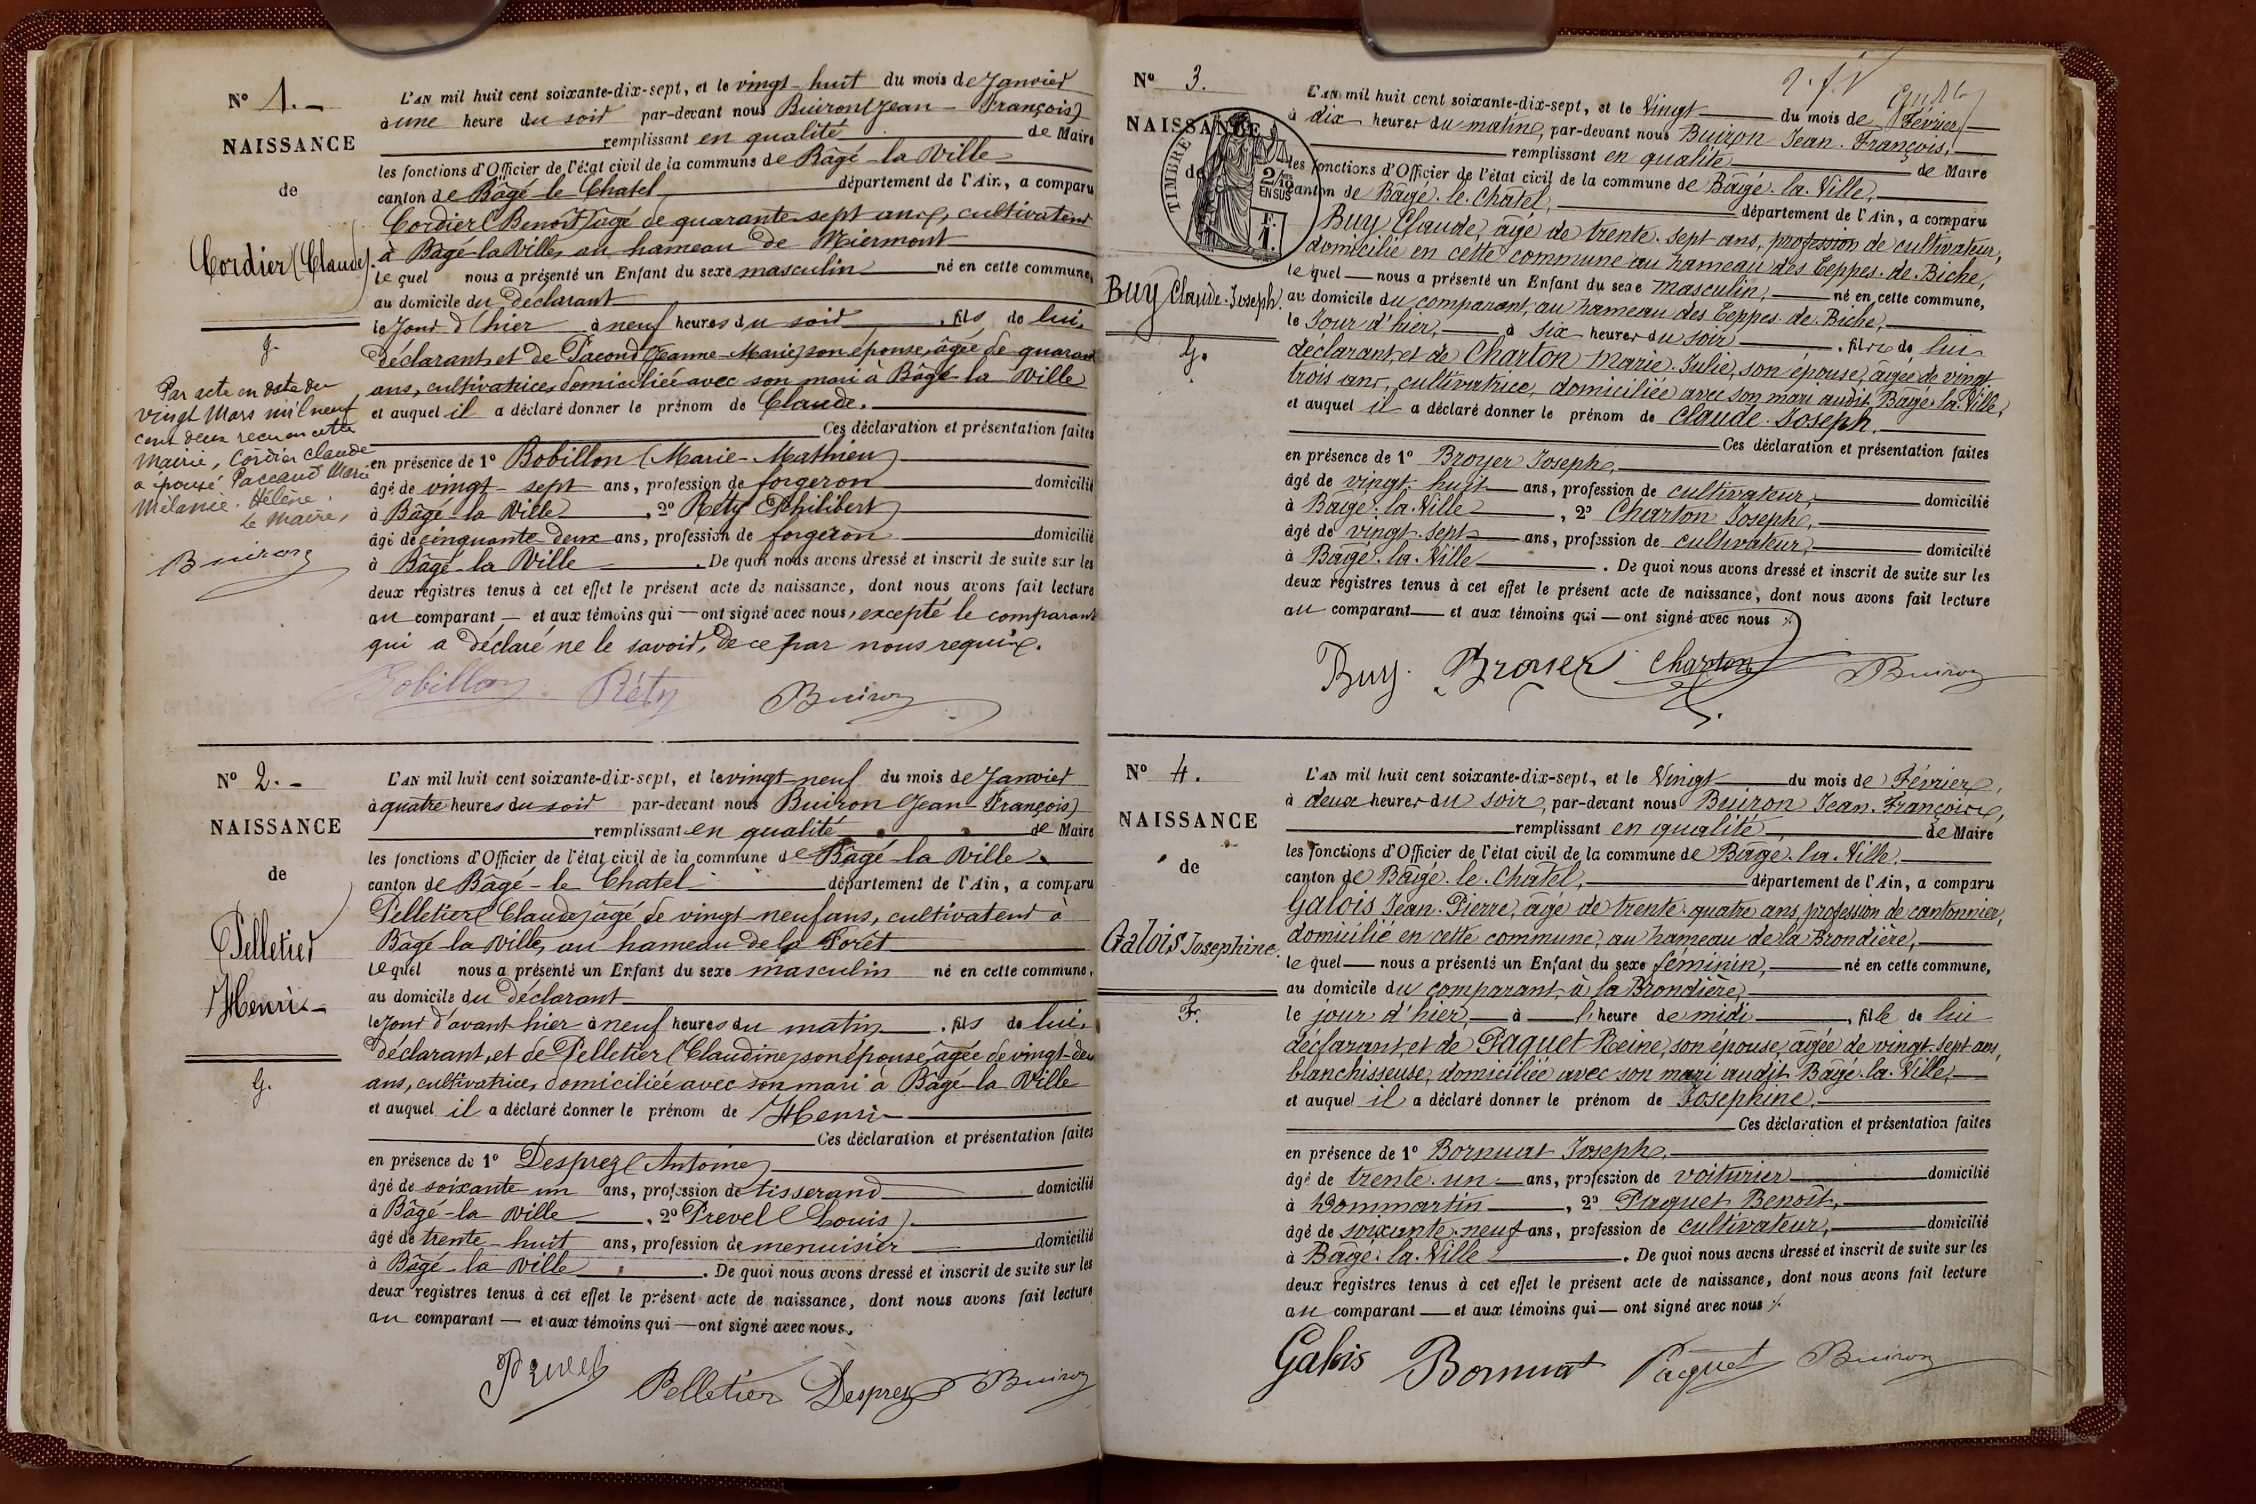 N° 1.
NAISSANCE
de
Cordier (Claude).
G.
Par acte en date du
vingt Mars mil neuf
cent deux reçu en cette
mairie, Cordier Claude
a épousé Paccaud Marie
Mélanie Hélène.
Le Maire,
Buiron
L'AN mil huit cent soixante-dix-sept, et le vingt-huit du mois de Janvier
à une heure du soir par-devant nous Buiron (Jean-François)
remplissant en qualité de Maire
les fonctions d'Officier de l'état civil de la commune de Bâgé-la-Ville
canton de Bâgé-le-Chatel département de l'Ain, a comparu
Cordier (Benoît) âgé de quarante-sept ans, cultivateur
à Bâgé-la-Ville, au hameau de Miermont
lequel nous a présenté un Enfant du sexe masculin né en cette commune,
au domicile du déclarant
le jour d'hier à neuf heures du soir, fils de lui,
déclarant, et de Pacoud (Jeanne-Marie) son épouse, âgée de quarante
ans, cultivatrice, domiciliée avec son mari à Bâgé-la-Ville
et auquel il a déclaré donner le prénom de Claude.
Ces déclaration et présentation faites
en présence de 1° Bobillon (Marie-Mathieu)
âgé de vingt-sept ans, profession de forgeron domicilié
à Bâgé-la-Ville, 2° Réty (Philibert)
âgé de cinquante-deux ans, profession de forgeron domicilié
à Bâgé-la-Ville. De quoi nous avons dressé et inscrit de suite sur les
deux registres tenus à cet effet le présent acte de naissance, dont nous avons fait lecture
au comparant — et aux témoins qui — ont signé avec nous, excepté le comparant
qui a déclaré ne le savoir, de ce par nous requis.
Bobillon Réty Buiron
N° 2.
NAISSANCE
de
Pelletier
Henri
G.
L'AN mil huit cent soixante-dix-sept, et le vingt-neuf du mois de Janvier
à quatre heures du soir par-devant nous Buiron (Jean-François)
remplissant en qualité de Maire
les fonctions d'Officier de l'état civil de la commune de Bâgé-la-Ville
canton de Bâgé-le-Chatel département de l'Ain, a comparu
Pelletier (Claude) âgé de vingt-neuf ans, cultivateur à
Bâgé-la-Ville, au hameau de la Forêt
lequel nous a présenté un Enfant du sexe masculin né en cette commune,
au domicile du déclarant
le jour d'avant-hier à neuf heures du matin, fils de lui,
déclarant, et de Pelletier (Claudine) son épouse, âgée de vingt-deux
ans, cultivatrice, domiciliée avec son mari à Bâgé-la-Ville
et auquel il a déclaré donner le prénom de Henri
Ces déclaration et présentation faites
en présence de 1° Desprez (Antoine)
âgé de soixante-un ans, profession de tisserand domicilié
à Bâgé-la-Ville, 2° Prevel (Louis)
âgé de trente-huit ans, profession de menuisier domicilié
à Bâgé-la-Ville. De quoi nous avons dressé et inscrit de suite sur les
deux registres tenus à cet effet le présent acte de naissance, dont nous avons fait lecture
au comparant — et aux témoins qui — ont signé avec nous.
Prevel Pelletier Desprez Buiron
N° 3.
NAISSANCE
de
TIMBRE
2/10
EN SUS
F.
1.
Buy Claude-Joseph.
G.
L'AN mil huit cent soixante-dix-sept, et le Vingt du mois de Février
à dix heures du matin, par-devant nous Buiron Jean-François,
remplissant en qualité de Maire
les fonctions d'Officier de l'état civil de la commune de Bâgé-la-Ville,
canton de Bâgé-le-Châtel, département de l'Ain, a comparu
Buy Claude, âgé de trente-sept ans, profession de cultivateur,
domicilié en cette commune au hameau des Teppes-de-Biche,
lequel — nous a présenté un Enfant du sexe masculin, né en cette commune,
au domicile du comparant, au hameau des Teppes-de-Biche,
le Jour d'hier, à six heures du soir, fils de lui
déclarant, et de Charton Marie-Julie, son épouse, âgée de vingt-
trois ans, cultivatrice, domiciliée avec son mari audit Bâgé-la-Ville,
et auquel il a déclaré donner le prénom de Claude-Joseph.
Ces déclaration et présentation faites
en présence de 1° Broyer Joseph,
âgé de vingt-huit ans, profession de cultivateur, domicilié
à Bâgé-la-Ville, 2° Charton Joseph,
âgé de vingt-sept ans, profession de cultivateur, domicilié
à Bâgé-la-Ville. De quoi nous avons dressé et inscrit de suite sur les
deux registres tenus à cet effet le présent acte de naissance, dont nous avons fait lecture
au comparant — et aux témoins qui — ont signé avec nous
Buy. Broyer Charton Buiron
N° 4.
NAISSANCE
de
Galois Josephine.
F.
L'AN mil huit cent soixante-dix-sept, et le Vingt du mois de Février,
à deux heures du soir, par-devant nous Buiron Jean-François,
remplissant en qualité de Maire
les fonctions d'Officier de l'état civil de la commune de Bâgé-la-Ville,
canton de Bâgé-le-Châtel, département de l'Ain, a comparu
Galois Jean-Pierre, âgé de trente-quatre ans, profession de cantonnier,
domicilié en cette commune, au hameau de la Brondière,
lequel — nous a présenté un Enfant du sexe féminin, né en cette commune,
au domicile du comparant, à la Brondière,
le jour d'hier, à l'heure de midi, fille de lui
déclarant, et de Paquet Reine, son épouse, âgée de vingt-sept ans,
blanchisseuse, domiciliée avec son mari audit Bâgé-la-Ville,
et auquel il a déclaré donner le prénom de Josephine.
Ces déclaration et présentation faites
en présence de 1° Bornuat Joseph,
âgé de trente-un ans, profession de voiturier domicilié
à Dommartin, 2° Paquet Benoît,
âgé de soixante-neuf ans, profession de cultivateur, domicilié
à Bâgé-la-Ville. De quoi nous avons dressé et inscrit de suite sur les
deux registres tenus à cet effet le présent acte de naissance, dont nous avons fait lecture
au comparant — et aux témoins qui — ont signé avec nous
Galois Bornuat Paquet Buiron